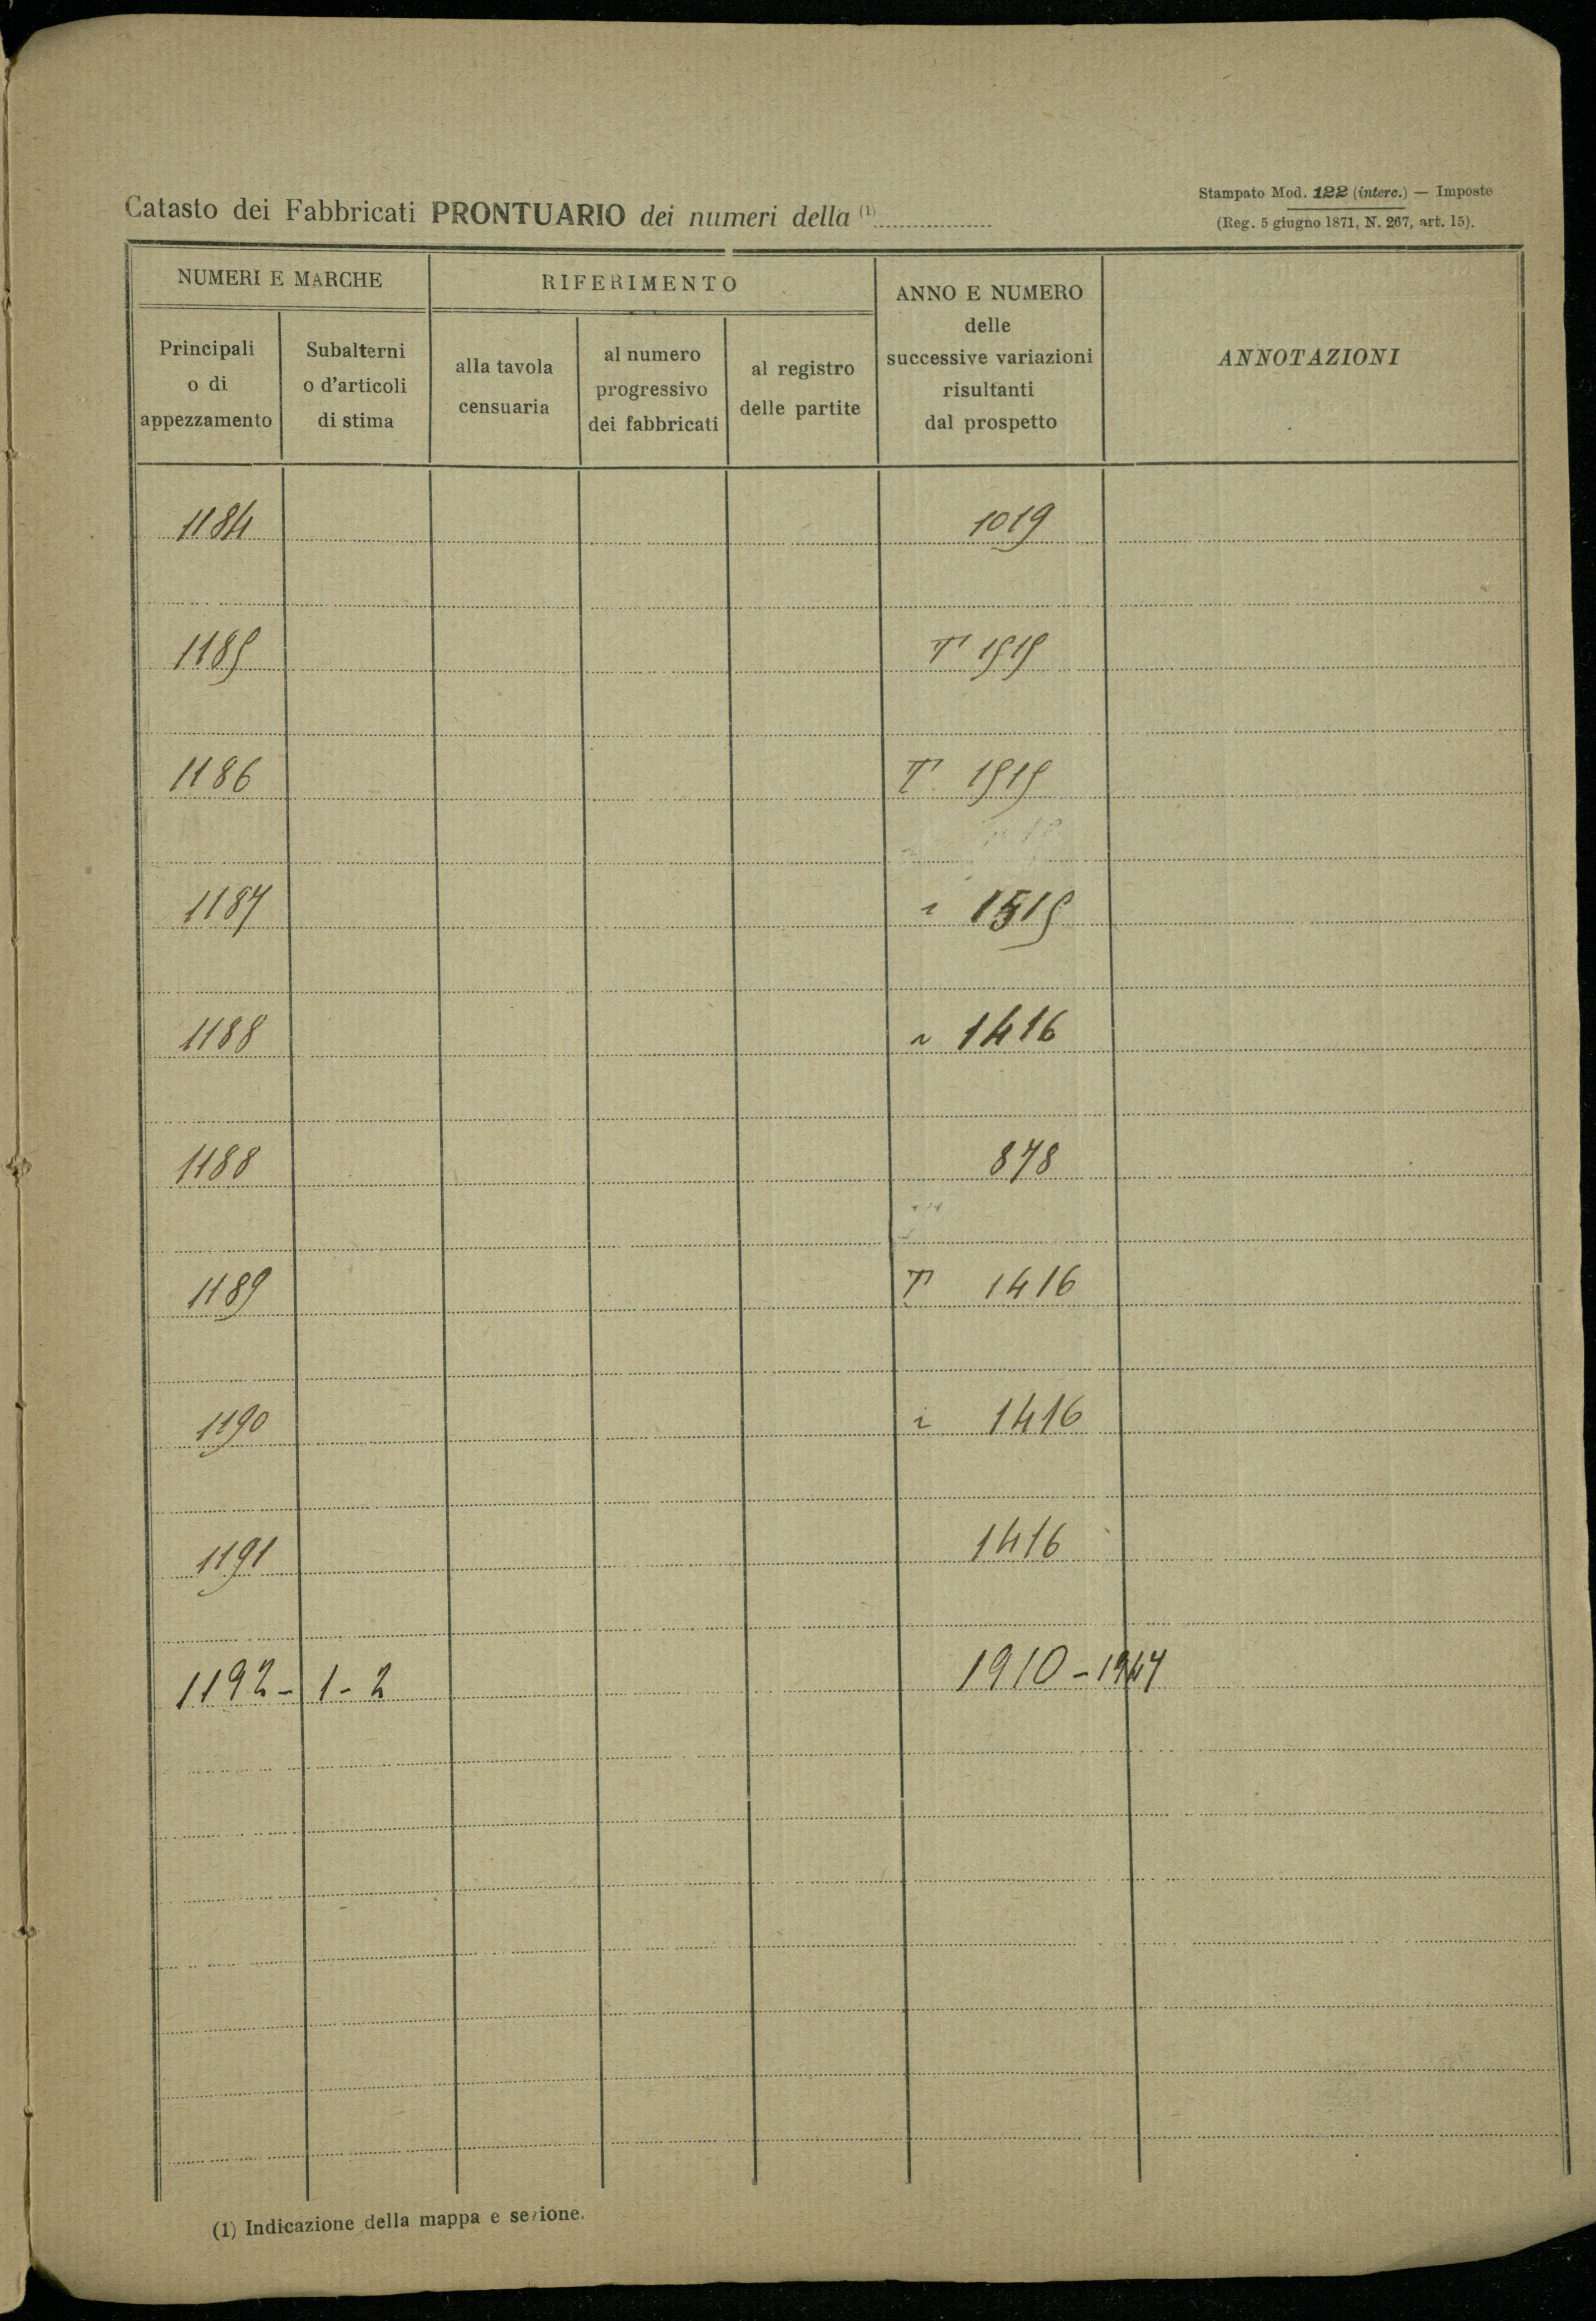 Catasto dei Fabbricati PRONTUARIO dei numeri della (1)
Stampato Mod. 122 (interc.) — Imposte
(Reg. 5 giugno 1871, N. 267, art. 15).
NUMERI E MARCHE
RIFERIMENTO
ANNO E NUMERO
delle
successive variazioni
risultanti
dal prospetto
ANNOTAZIONI
Principali
o di
appezzamento
Subalterni
o d'articoli
di stima
alla tavola
censuaria
al numero
progressivo
dei fabbricati
al registro
delle partite
1184 1019
1185 T 1515
1186 T. 1515
1187 1515
1188 1416
1188 878
1189 T 1416
1190 1416
1191 1416
1192 - 1 - 2 1910 - 1947
(1) Indicazione della mappa e sezione.